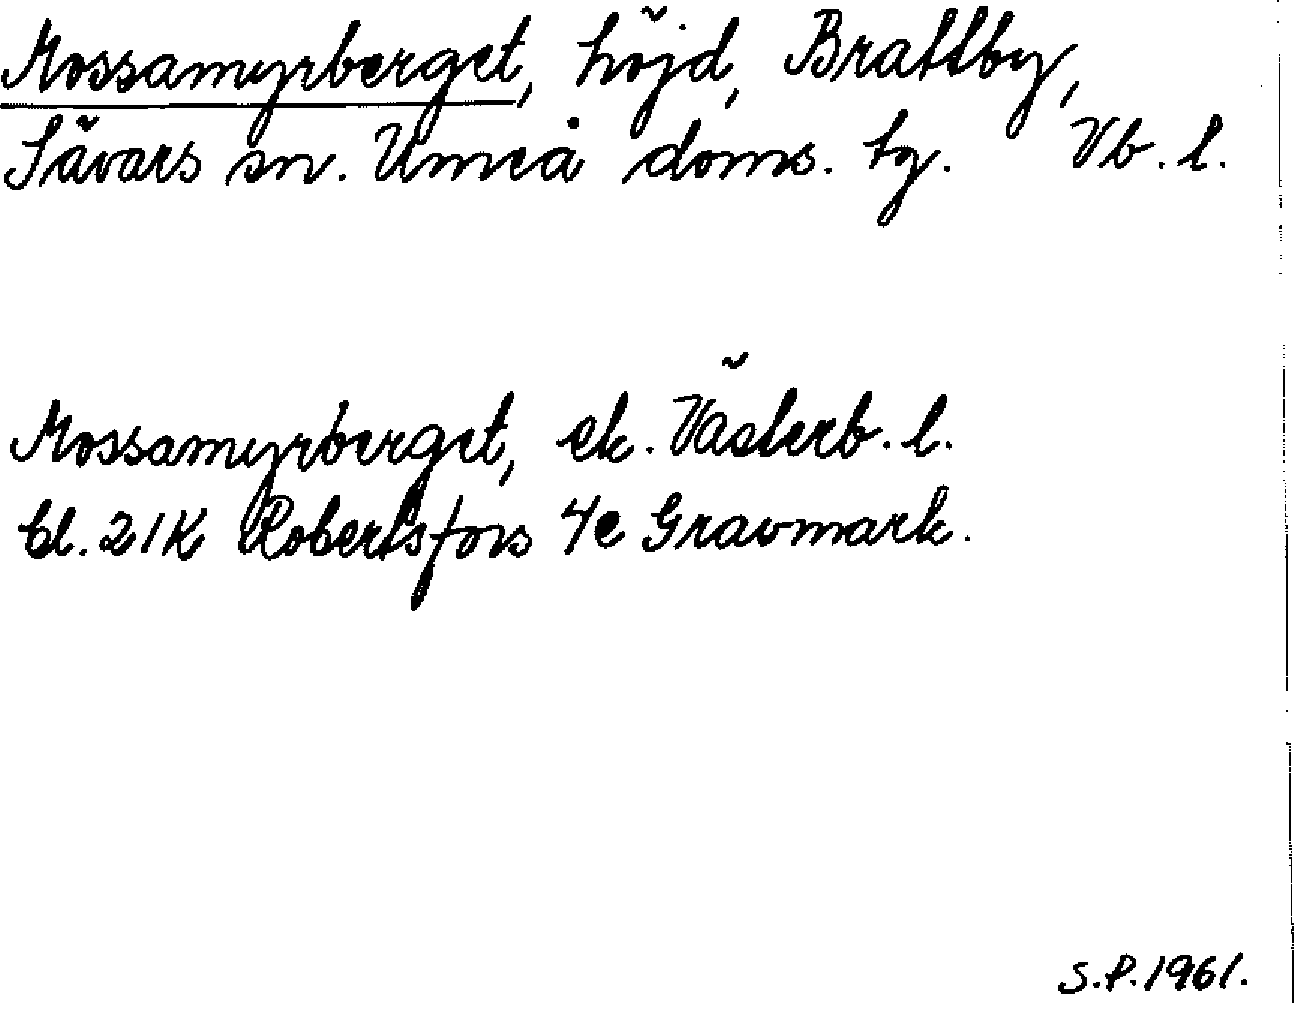 Mossamyrberget, höjd, Brattby,
Sävars sn. Umeå doms. tg. Vb. l.
Mossamyrberget, ek. Västerb. l.
bl. 21K Robertsfors 4e Gravmark.
S.P. 1961.